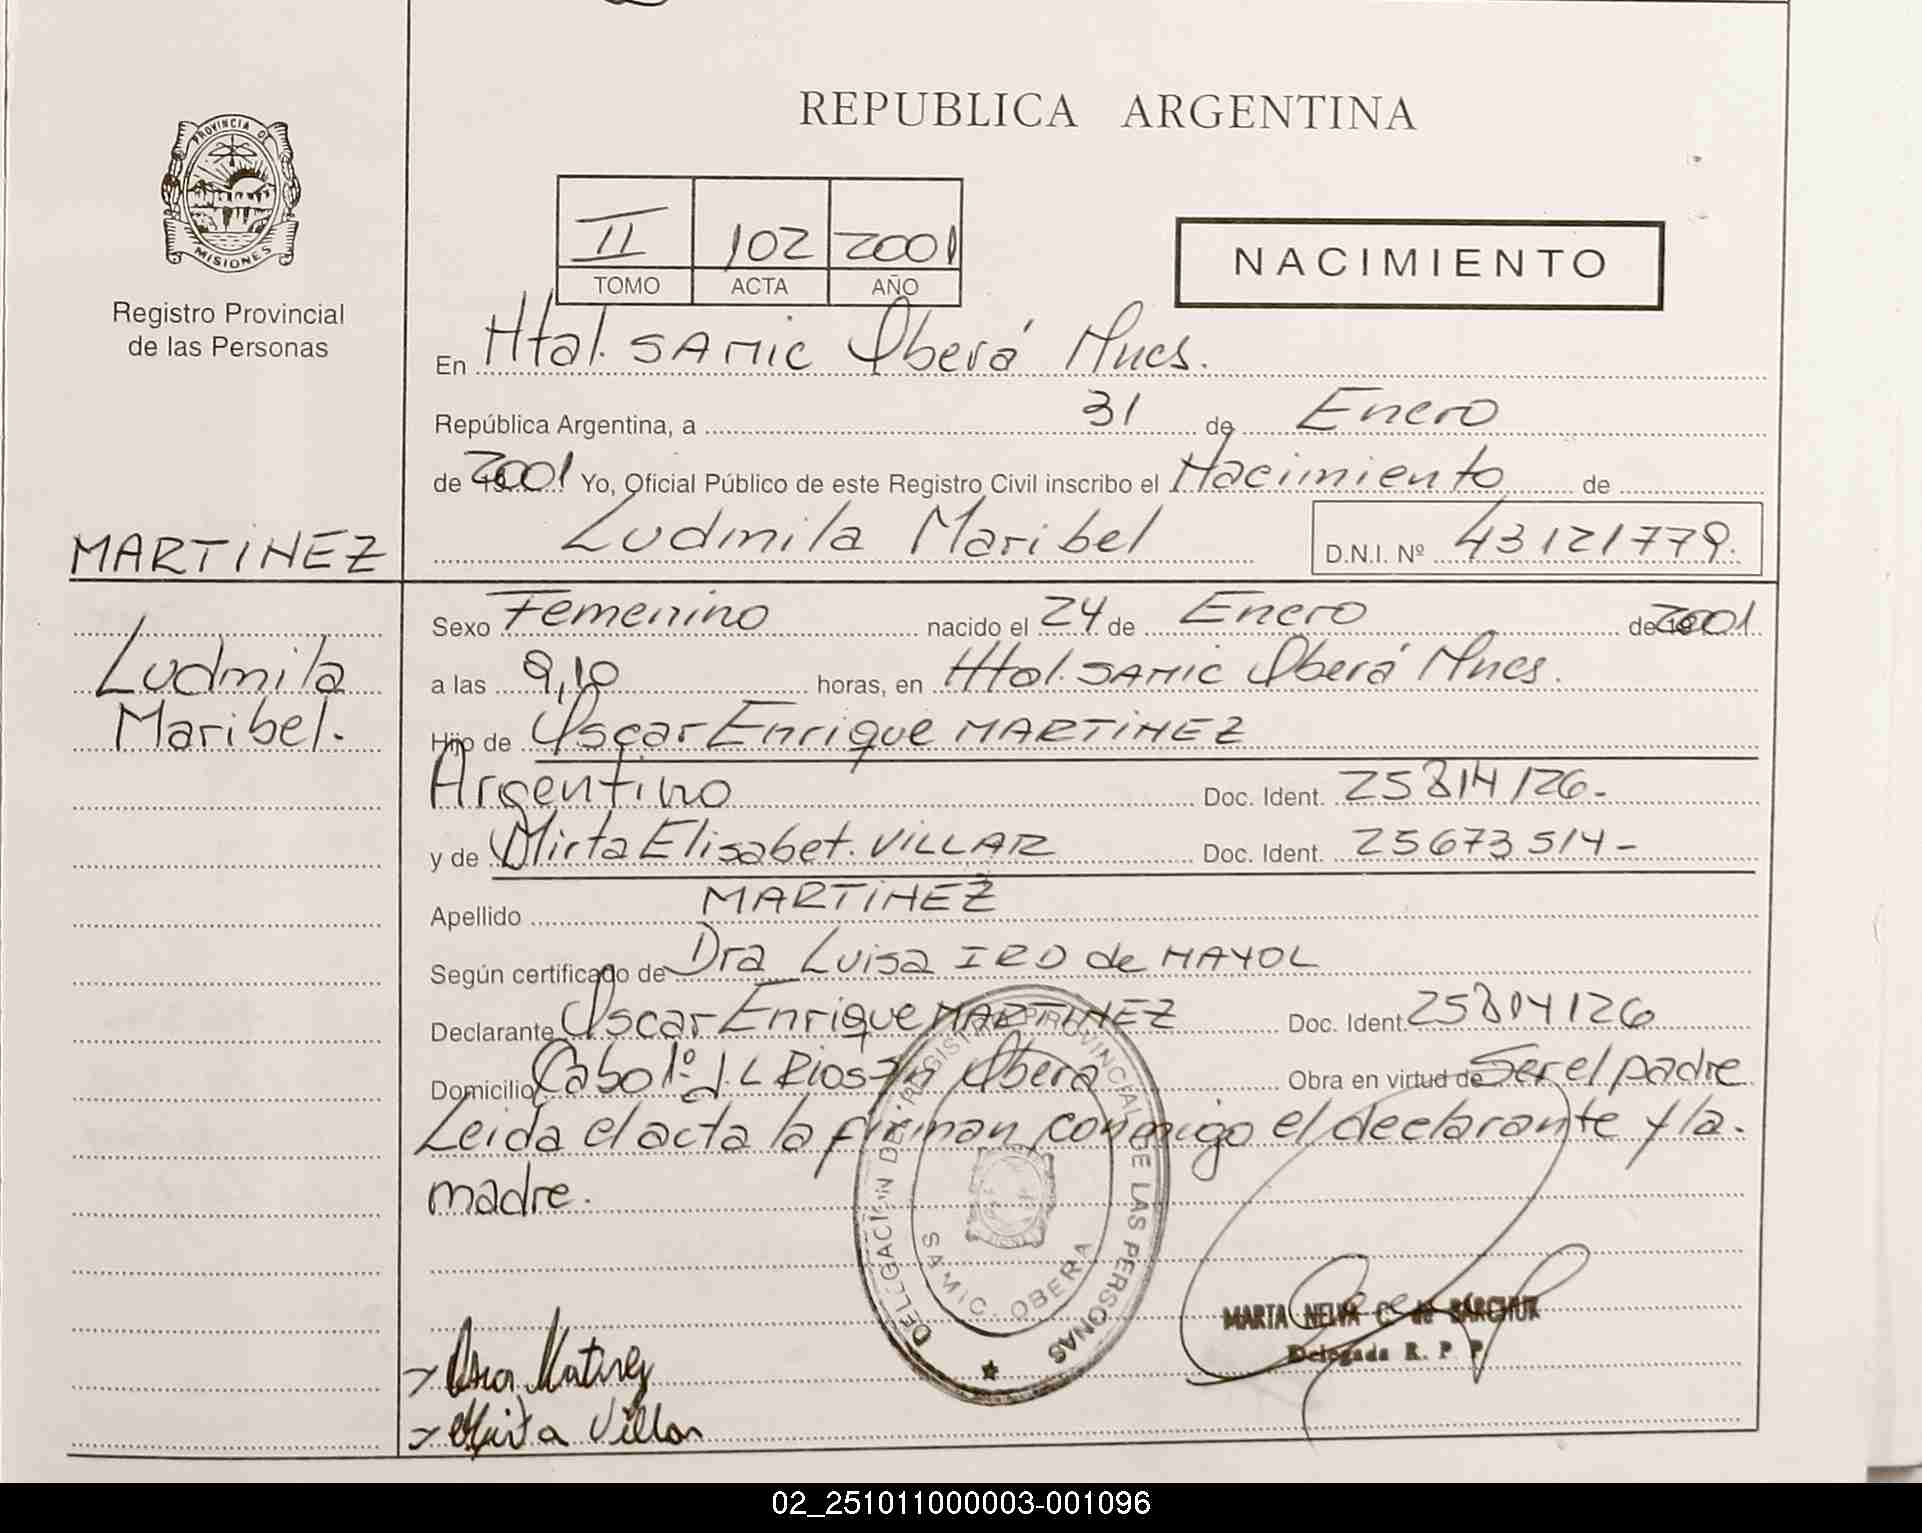 REPUBLICA ARGENTINA
PROVINCIA D MISIONES
Registro Provincial
de las Personas
II 102 2001
TOMO ACTA AÑO
NACIMIENTO
En Htal. SAMIC Oberá Mnes.
República Argentina, a 31 de Enero
de 2001 Yo, Oficial Público de este Registro Civil inscribo el Nacimiento de
Ludmila Maribel D.N.I. Nº 43121779.
MARTINEZ
Ludmila
Maribel.
Sexo Femenino nacido el 24 de Enero de 2001
a las 9,10 horas, en Htal. SAMIC Oberá Mnes.
Hijo de Oscar Enrique MARTINEZ
Argentino Doc. Ident. 25814126-
y de Mirta Elisabet. VILLAR Doc. Ident. 25673514-
Apellido MARTINEZ
Según certificado de Dra Luisa IRO de MAYOL
Declarante Oscar Enrique MARTINEZ Doc. Ident. 25814126
Domicilio Cabo 1º J.L Rios S/n Oberá Obra en virtud de Ser el padre
Leida el acta la firman conmigo el declarante y la.
madre.
DELEGACION DEL REGISTRO PROVINCIAL DE LAS PERSONAS
SAMIC. OBERA
MARTA NELVA C. de BARCHUK
Delegada R. P. P.
Oscar Martinez
Mirta Villar
02_251011000003-001096